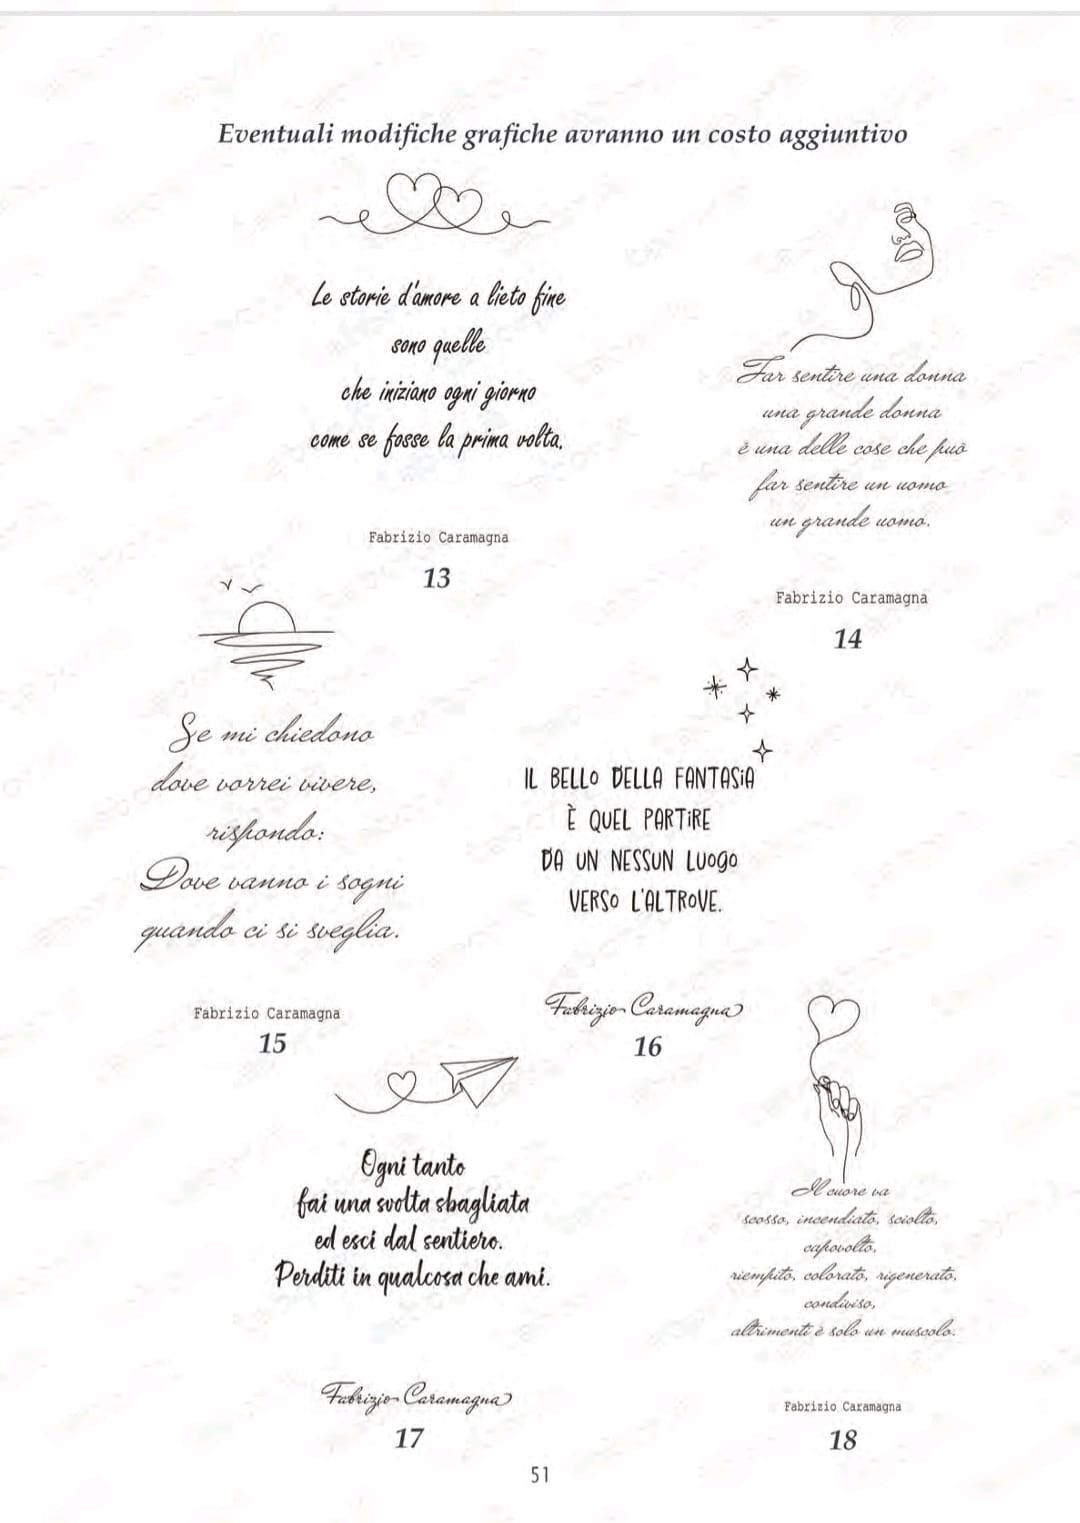 Eventuali modifiche grafiche avranno un costo aggiuntivo
Le storie d'amore a lieto fine
sono quelle
che iniziano ogni giorno
come se fosse la prima volta.
Fabrizio Caramagna
13
Far sentire una donna
una grande donna
è una delle cose che può
far sentire un uomo
un grande uomo.
Fabrizio Caramagna
14
Se mi chiedono
dove vorrei vivere,
rispondo:
Dove vanno i sogni
quando ci si sveglia.
Fabrizio Caramagna
15
IL BELLO DELLA FANTASIA
È QUEL PARTIRE
DA UN NESSUN LUOGO
VERSO L'ALTROVE.
Fabrizio Caramagna
16
Ogni tanto
fai una svolta sbagliata
ed esci dal sentiero.
Perditi in qualcosa che ami.
Fabrizio Caramagna
17
Il cuore va
scosso, incendiato, sciolto,
capovolto,
riempito, colorato, rigenerato,
condiviso,
altrimenti è solo un muscolo.
Fabrizio Caramagna
18
51